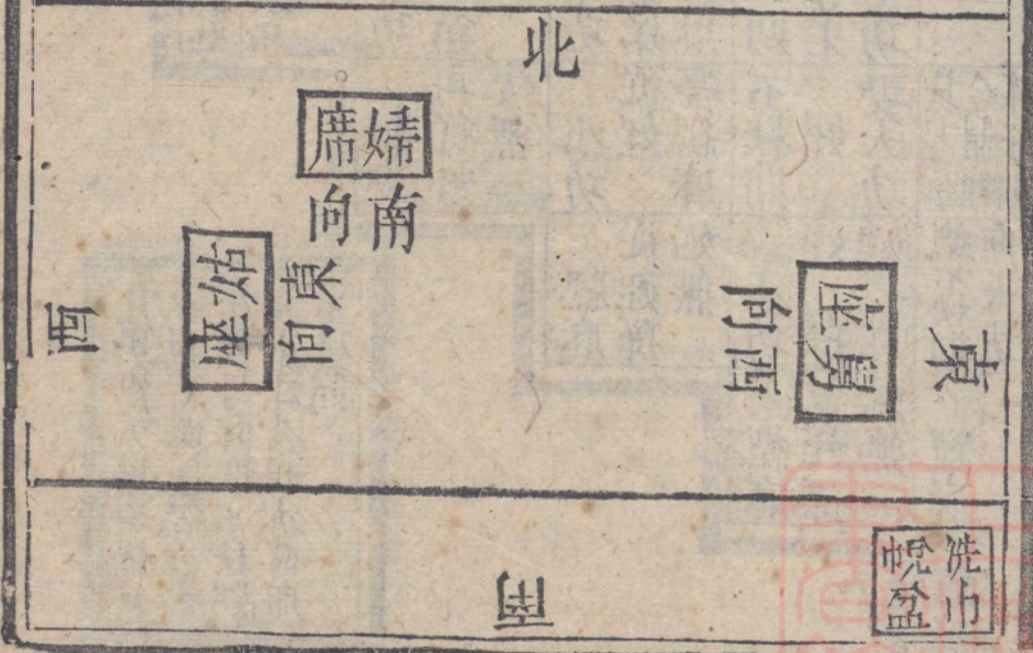 北
婦席
南向
姑座
東向
西
舅座
西向
東
南
巾
盆